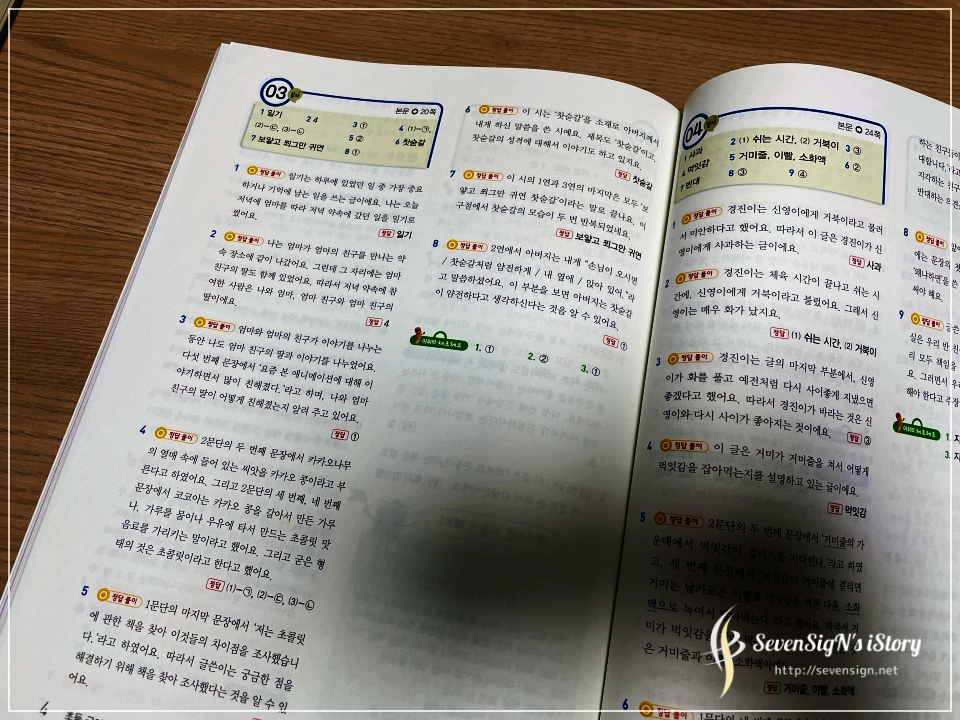 03
본문 20쪽
1 일기 2 4 3 ① 4 (1)-㉠,
(2)-㉢, (3)-㉡ 5 ② 6 찻숟갈
7 보얗고 쬐그만 귀면 8 ①
1 정답 풀이 일기는 하루에 있었던 일 중 가장 중요
하거나 기억에 남는 일을 쓰는 글이에요. 나는 오늘
저녁에 엄마를 따라 저녁 약속에 갔던 일을 일기로
썼어요.
정답 일기
2 정답 풀이 나는 엄마가 엄마의 친구를 만나는 약
속 장소에 같이 나갔어요. 그런데 그 자리에는 엄마
친구의 딸도 함께 있었어요. 따라서 저녁 약속에 참
여한 사람은 나와 엄마, 엄마 친구와 엄마 친구의
딸이에요.
정답 4
3 정답 풀이 엄마와 엄마의 친구가 이야기를 나누는
동안 나도 엄마 친구의 딸과 이야기를 나누었어요.
다섯 번째 문장에서 '요즘 본 애니메이션에 대해 이
야기하면서 많이 친해졌다.'라고 하며, 나와 엄마
친구의 딸이 어떻게 친해졌는지 알려 주고 있어요.
정답 ①
4 정답 풀이 2문단의 두 번째 문장에서 카카오나무
의 열매 속에 들어 있는 씨앗을 카카오 콩이라고 부
른다고 하였어요. 그리고 2문단의 세 번째, 네 번째
문장에서 코코아는 카카오 콩을 갈아서 만든 가루
나, 가루를 물이나 우유에 타서 만드는 초콜릿 맛
음료를 가리키는 말이라고 했어요. 그리고 굳은 형
태의 것은 초콜릿이라고 한다고 했어요.
정답 (1)-㉠, (2)-㉢, (3)-㉡
5 정답 풀이 1문단의 마지막 문장에서 '저는 초콜릿
에 관한 책을 찾아 이것들의 차이점을 조사했습니
다.'라고 하였어요. 따라서 글쓴이는 궁금한 점을
해결하기 위해 책을 찾아 조사했다는 것을 알 수 있
어요.
4
6 정답 풀이 이 시는 '찻숟갈'을 소재로 아버지께서
내게 하신 말씀을 쓴 시예요. 제목도 '찻숟갈'이고,
찻숟갈의 성격에 대해서 이야기도 하고 있지요.
정답 찻숟갈
7 정답 풀이 이 시의 1연과 3연의 마지막은 모두 '보
얗고 쬐그만 귀면 찻숟갈'이라는 말로 끝나요. 이
구절에서 찻숟갈의 모습이 두 번 반복되었네요.
정답 보얗고 쬐그만 귀면
8 정답 풀이 2연에서 아버지는 내게 "손님이 오시면
/ 찻숟갈처럼 얌전하게 / 내 옆에 / 앉아 있어."라
고 말씀하셨어요. 이 부분을 보면 아버지는 찻숟갈
이 얌전하다고 생각하신다는 것을 알 수 있어요.
정답 ①
어휘력 쑥쑥 1. ① 2. ② 3. ①
04
본문 24쪽
1 사과 2 (1) 쉬는 시간, (2) 거북이 3 ③
4 먹잇감 5 거미줄, 이빨, 소화액 6 ②
7 반대 8 ③ 9 ④
1 정답 풀이 경진이는 신영이에게 거북이라고 불러
서 미안하다고 했어요. 따라서 이 글은 경진이가 신
영이에게 사과하는 글이에요.
정답 사과
2 정답 풀이 경진이는 체육 시간이 끝나고 쉬는 시
간에, 신영이에게 거북이라고 불렀어요. 그래서 신
영이는 매우 화가 났지요.
정답 (1) 쉬는 시간, (2) 거북이
3 정답 풀이 경진이는 글의 마지막 부분에서, 신영
이가 화를 풀고 예전처럼 다시 사이좋게 지냈으면
좋겠다고 했어요. 따라서 경진이가 바라는 것은 신
영이와 다시 사이가 좋아지는 것이에요.
정답 ③
4 정답 풀이 이 글은 거미가 거미줄을 쳐서 어떻게
먹잇감을 잡아먹는지를 설명하고 있는 글이에요.
정답 먹잇감
5 정답 풀이 2문단의 두 번째 문장에서 '거미줄의 가
운데에서 먹잇감이 걸리기를 기다린다.'라고 하였
고, 세 번째 문장에서 '먹잇감이 거미줄에 걸리면
거미는 날카로운 이빨로 먹잇감을 찌른 다음, 소화
액으로 녹여서 먹는다.'라고 했어요. 따라서 거
미가 먹잇감을
은 거미줄과 소화액이에요.
정답 거미줄, 이빨, 소화액
6 정답 풀이 1문단의 세 번째
8 정답
9 정답
SevenSigN's iStory
http://sevensign.net